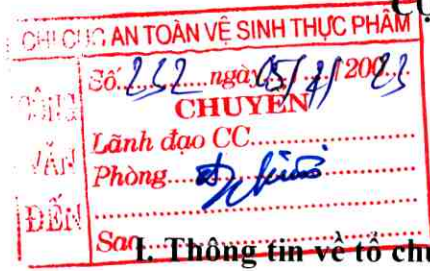 CỤ
CHI CỤC AN TOÀN VỆ SINH THỰC PHẨM
CÔNG VĂN ĐẾN
Số 232 ngày 05/ / 2023
CHUYỂN
Lãnh đạo CC
Phòng
Sao
I. Thông tin về tổ chứ